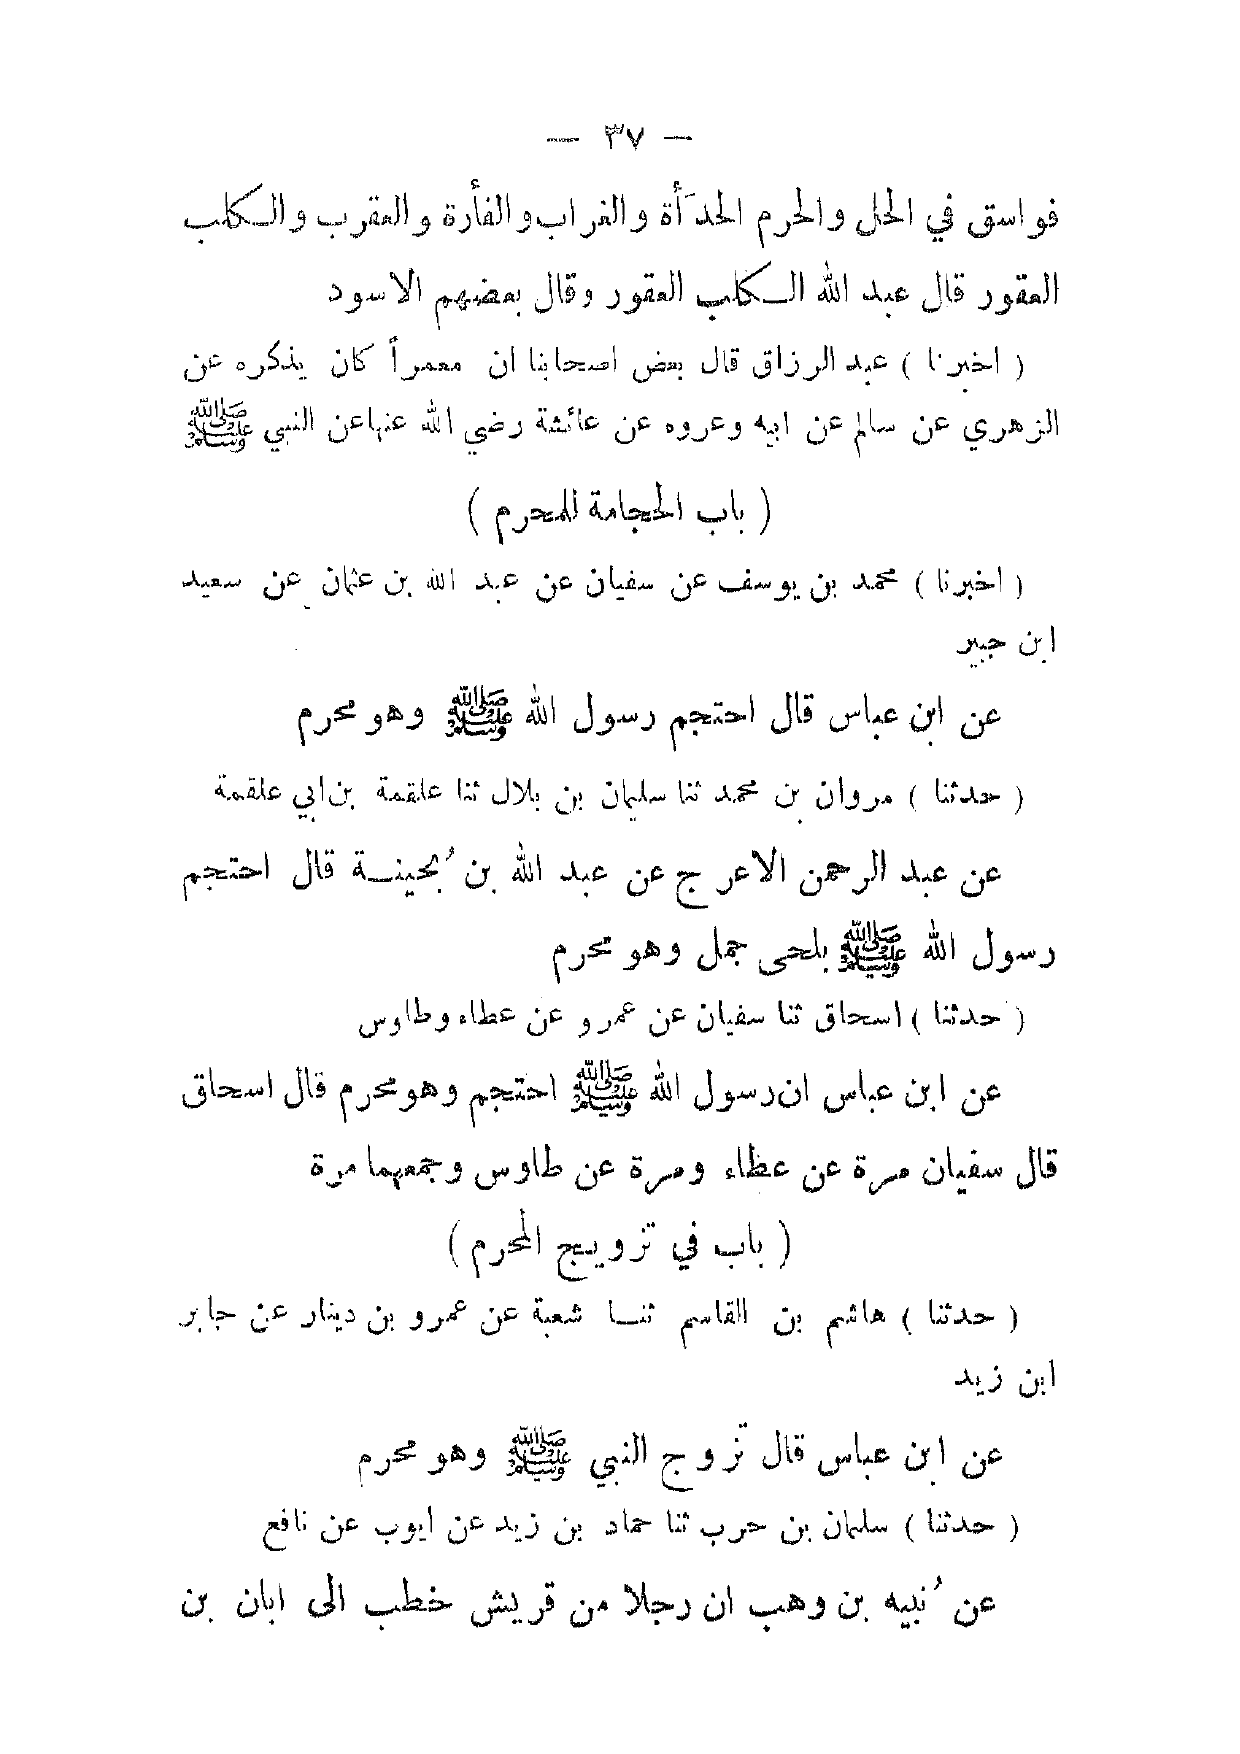 — ٣٧ —
فواسق في الحل والحرم الحدَأة والغراب والفأرة والعقرب والكلب
العقور قال عبد الله الكلب العقور وقال بعضهم الاسود
( اخبرنا ) عبد الرزاق قال بعض اصحابنا ان معمراً كان يذكره عن
الزهري عن سالم عن ابيه وعروه عن عائشة رضي الله عنها عن النبي ﷺ
( باب الحجامة للمحرم )
( اخبرنا ) محمد بن يوسف عن سفيان عن عبد الله بن عثمان عن سعيد
ابن جبير
عن ابن عباس قال احتجم رسول الله ﷺ وهو محرم
( حدثنا ) مروان بن محمد ثنا سليمان بن بلال ثنا علقمة بن ابي علقمة
عن عبد الرحمن الاعرج عن عبد الله بن بُحينة قال احتجم
رسول الله ﷺ بلحى جمل وهو محرم
( حدثنا ) اسحاق ثنا سفيان عن عمرو عن عطاء وطاوس
عن ابن عباس ان رسول الله ﷺ احتجم وهو محرم قال اسحاق
قال سفيان مرة عن عطاء ومرة عن طاوس وجمعهما مرة
( باب في تزويج المحرم )
( حدثنا ) هاشم بن القاسم ثنا شعبة عن عمرو بن دينار عن جابر
ابن زيد
عن ابن عباس قال تزوج النبي ﷺ وهو محرم
( حدثنا ) سليمان بن حرب ثنا حماد بن زيد عن ايوب عن نافع
عن نُبيه بن وهب ان رجلا من قريش خطب الى ابان بن